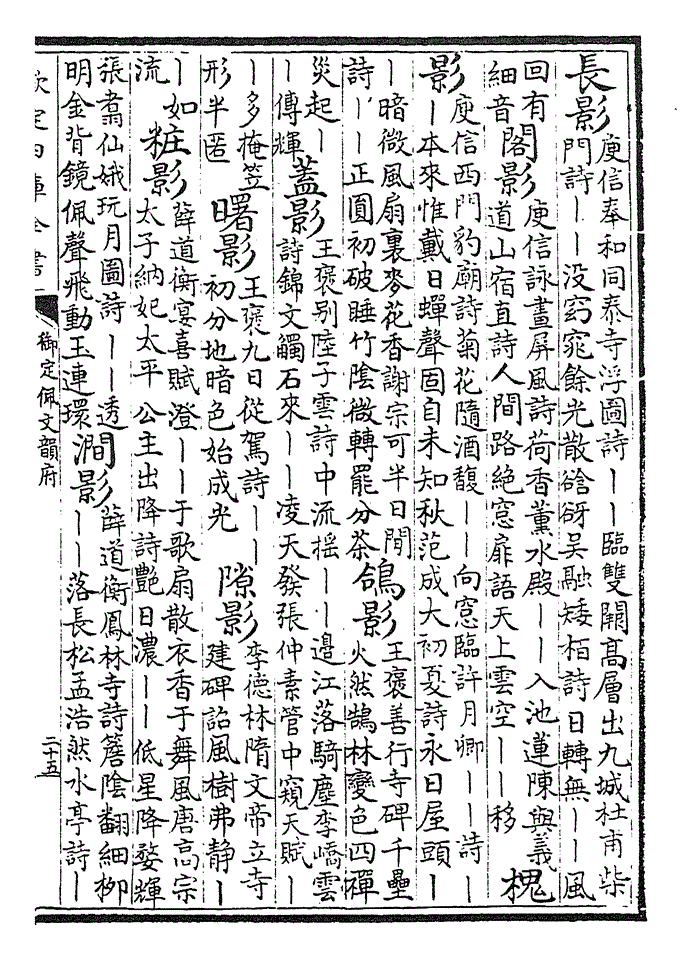 長影
庾信奉和同泰寺浮圖詩丨丨臨雙闕髙層出九城杜甫柴
門詩丨丨没窈窕餘光散谽谺吳融矮栢詩日轉無丨丨風
回有
細音
閣影
庾信詠畫屏風詩荷香薰水殿丨丨入池蓮陳與義
道山宿直詩人間路絶窓扉語天上雲空丨丨移
槐
影
庾信西門豹廟詩菊花隨酒馥丨丨向窓臨許月卿丨丨詩丨
丨本來惟戴日蟬聲固自未知秋范成大初夏詩永日屋頭丨
丨暗微風扇裏麥花香謝宗可半日閒
詩丨丨正圓初破睡竹陰微轉罷分茶
鴿影
王褒善行寺碑千壘
火然鵠林變色四禪
災起丨
丨傳輝
蓋影
王褒别陸子雲詩中流摇丨丨邉江落騎塵李嶠雲
詩錦文觸石來丨丨凌天發張仲素管中窺天賦丨
丨多掩笠
形半匿
曙影
王褒九日從駕詩丨丨
初分地暗色始成光
隙影
李德林隋文帝立寺
建碑詔風樹弗静丨
丨如
流
粧影
薛道衡宴喜賦澄丨丨于歌扇散衣香于舞風唐髙宗
太子納妃太平公主出降詩艷日濃丨丨低星降婺輝
張翥仙娥玩月圖詩丨丨透
明金背鏡佩聲飛動玉連環
澗影
薛道衡鳳林寺詩簷陰翻細栁
丨丨落長松孟浩然水亭詩丨
欽定四庫全書
御定佩文韻府
二十五